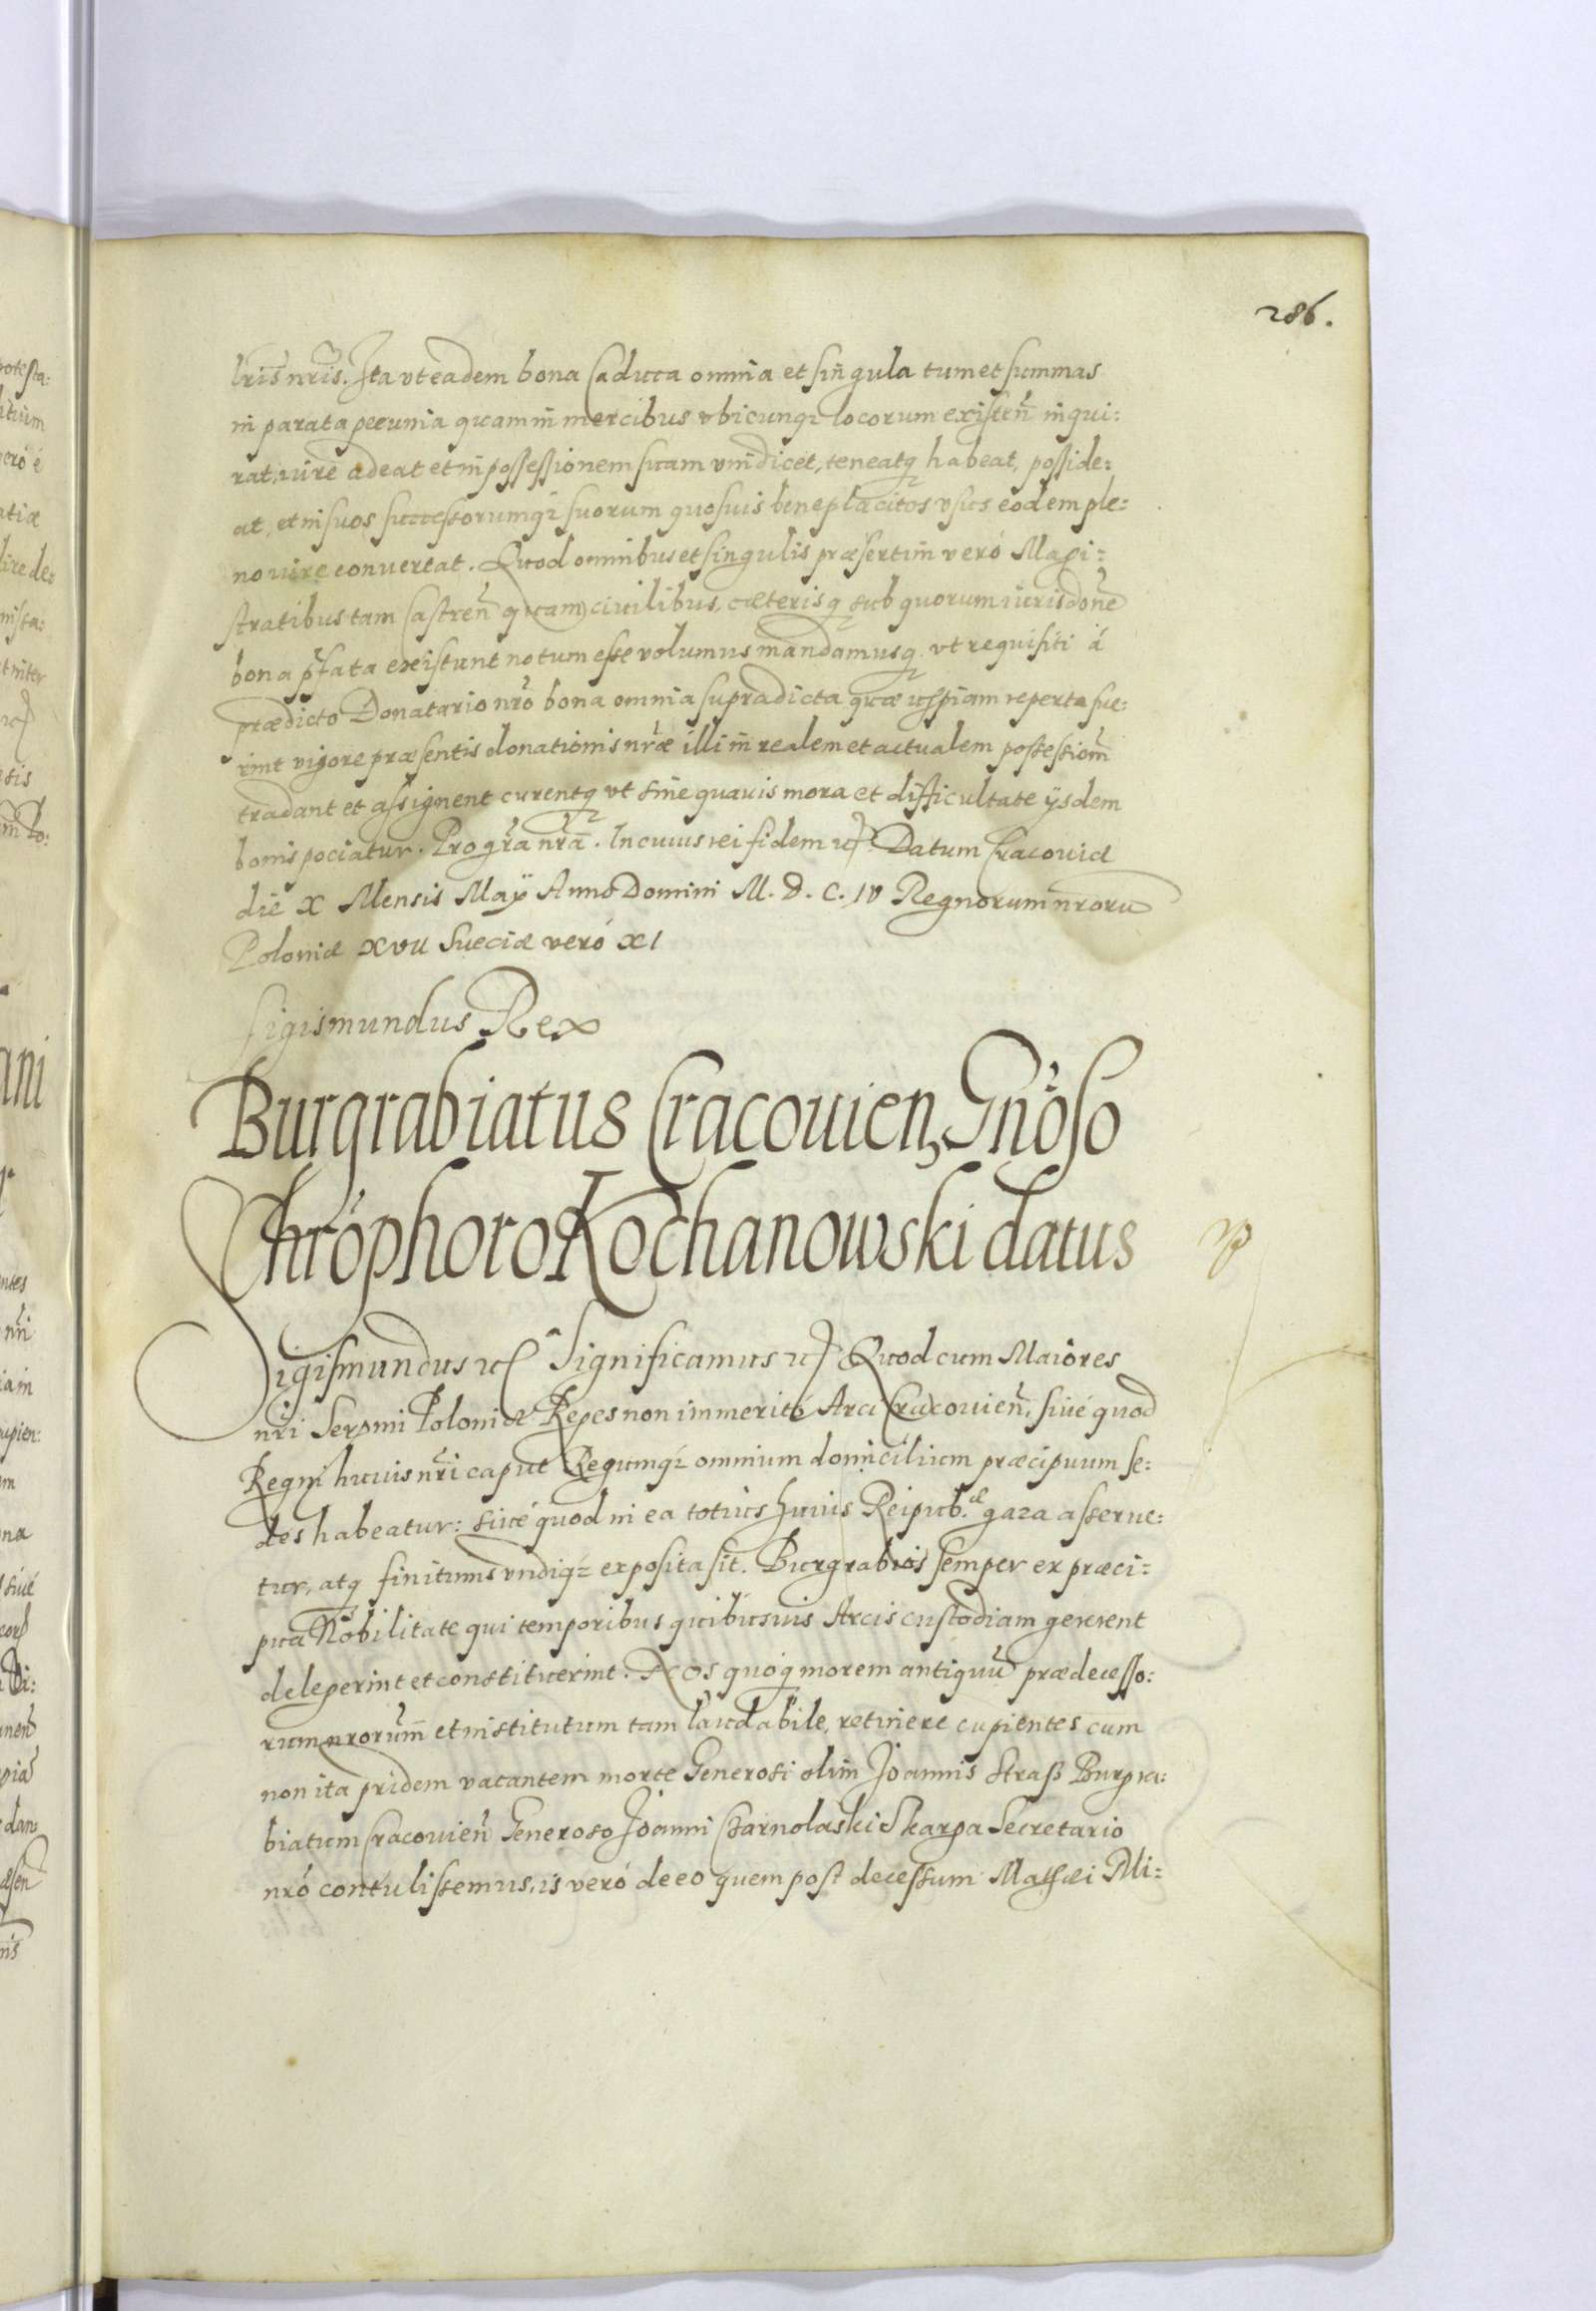 286.
lris nris. Ita vt eadem bona Caduca omnia et singula tum et summas
in parata pecunia quam in mercibus vbicunq; locorum existen̄ inqui:
rat, iure adeat et in possessionem suam vindicet, teneatq; habeat, posside:
at, et in suos successorumq; suorum quosuis beneplacitos vsus eodem ple:
no iure conuertat. Quod omnibus et singulis præsertim veró Magi:
stratibus tam Castren̄ quam ciuilibus, cæterisq; sub quorum iurisdone
bona pfata existunt notum esse volumus mandamusq; vt requisiti á
prædicto Donatario nro bona omnia supradicta quæ uspiam reperta fue:
rint vigore præsentis donationis nræ illi in realem et actualem possessiom
tradant et assignent curentq; vt sine quauis mora et difficultate ÿsdem
bonis pociatur. Pro gra nra. In cuius rei fidem etc Datum Cracouiæ
die X Mensis Maÿ Anno Domini M. D. C. IV Regnorum nroru
Poloniæ XVII Sueciæ veró XI
Sigismundus Rex
Burgrabiatus Cracouien, Gnoso
Chrophoro Kochanowski datus
Sigismundus etc Significamus etc Quod cum Maiores
nri Sermi Poloniæ Reges non immeritó Arci Cracouien̄, siué quod
Regni huius nri caput Regumq; omnium domicilium præcipuum se:
des habeatur: siué quod in ea totius huius Reipub.æ gaza asserue:
tur, atq; finitimis vndiq; exposita sit. Burgrabios semper ex præci:
pua Nobilitate qui temporibus quibusuis Arcis custodiam gererent
delegerint et constituerint. Nos quoq; morem antiquū prædecesso:
rum nrorum et institutum tam laudabile, retinere cupientes cum
non ita pridem vacantem morte Generosi olim Joannis Strasz Burgra:
biatum Cracouien̄ Generoso Joanni Czarnolaski Skarga Secretario
nró contulissemus, is veró de eo quem post decessum Mathæi Mi: